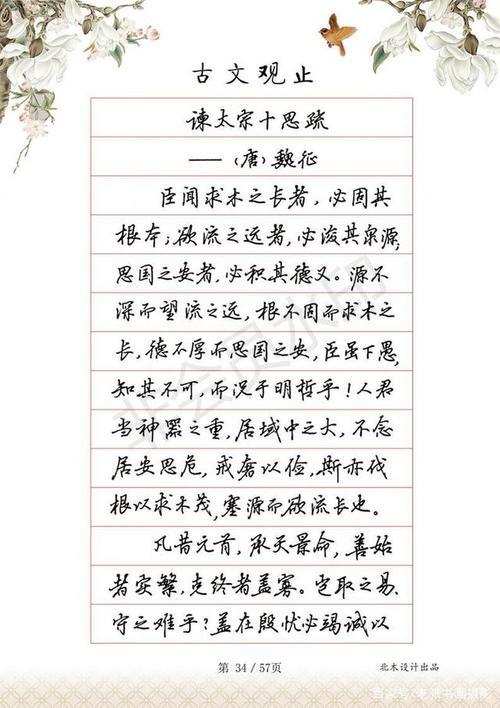 古文观止
谏太宗十思疏
——（唐）魏征
臣闻求木之长者，必固其
根本；欲流之远者，必浚其泉源，
思国之安者，必积其德义。源不
深而望流之远，根不固而求木之
长，德不厚而思国之安，臣虽下愚，
知其不可，而况于明哲乎！人君
当神器之重，居域中之大，不念
居安思危，戒奢以俭，斯亦伐
根以求木茂，塞源而欲流长也。
凡昔元首，承天景命，善始
者实繁，克终者盖寡。岂取之易、
守之难乎？盖在殷忧必竭诚以
第 34 / 57页
北木设计出品
非会员水印
百家号/老张书画摄影